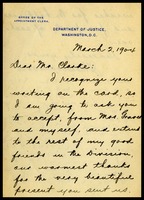 OFFICE OF THE
APPOINTMENT CLERK
DEPARTMENT OF JUSTICE,
WASHINGTON, D.C.
March 2, 1904
Dear Mr. Clarke:
I recognize your
working on the card, so
I am going to ask you
to accept, from Mrs.
and myself, and extend
to the rest of my good
friends in the Division,
our warmest thanks
for the very beautiful
present you sent us.